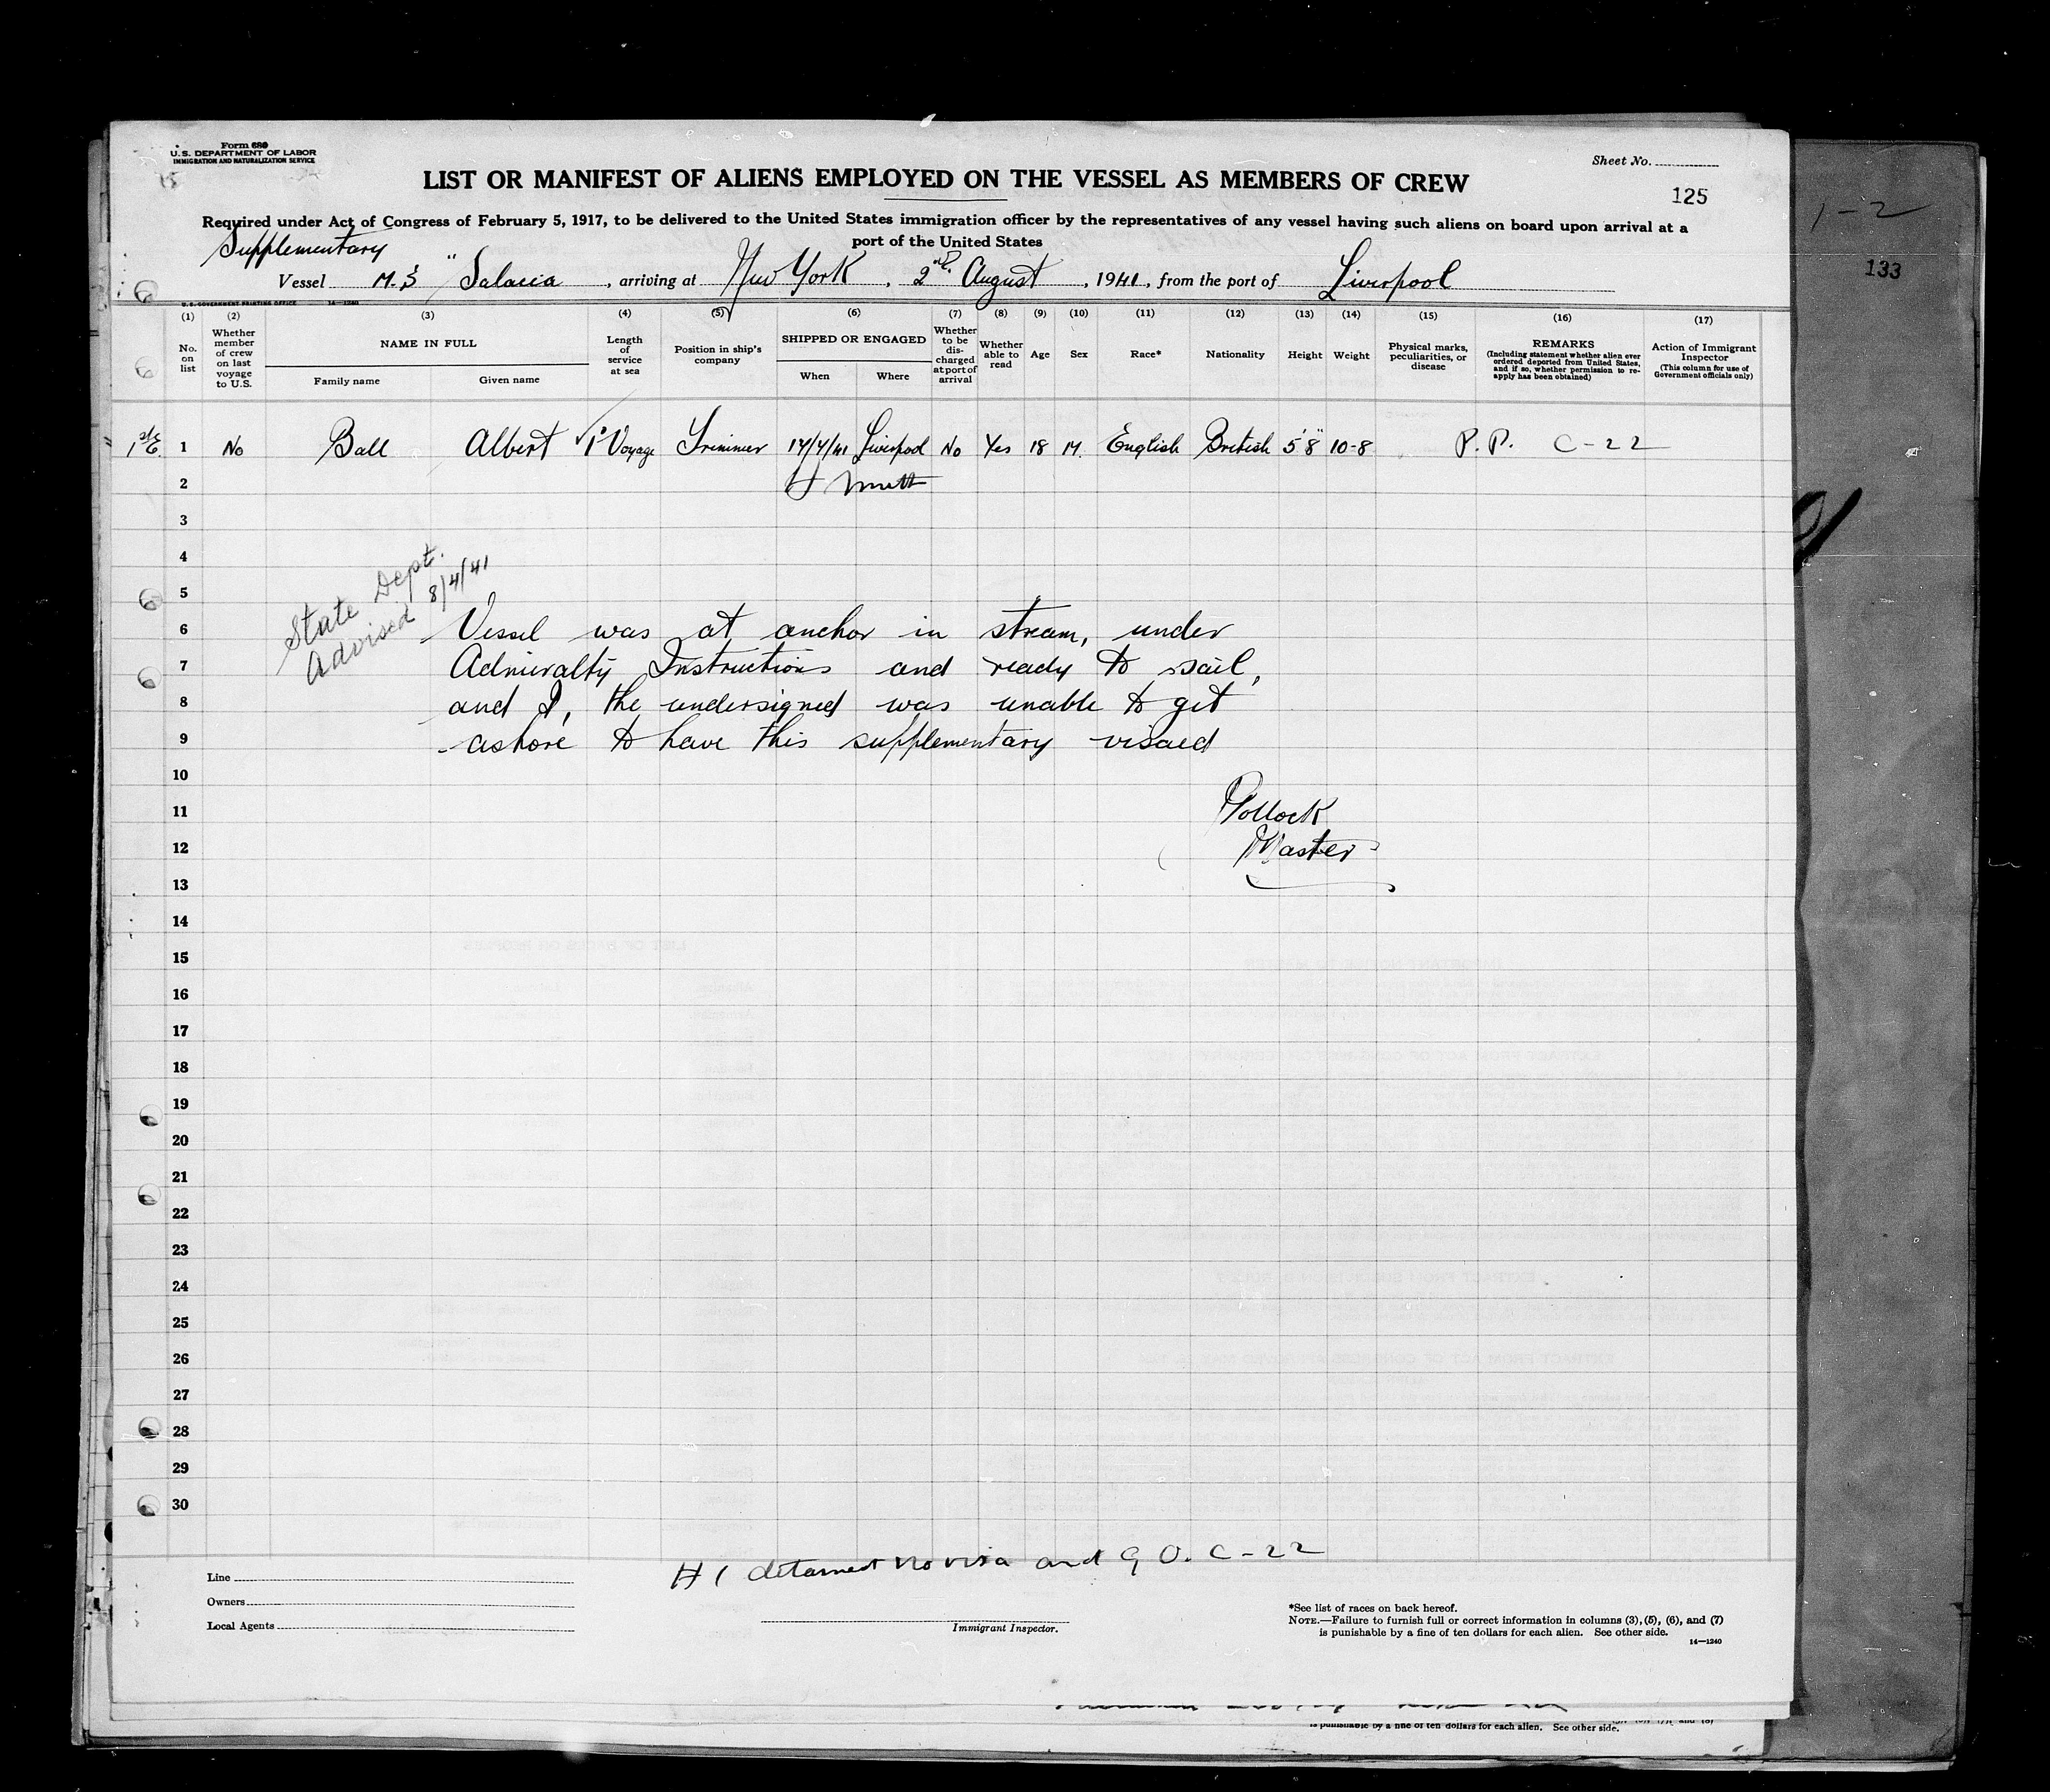 Form 680
U.S. DEPARTMENT OF LABOR
IMMIGRATION AND NATURALIZATION SERVICE
Sheet No.
LIST OR MANIFEST OF ALIENS EMPLOYED ON THE VESSEL AS MEMBERS OF CREW
125
Required under Act of Congress of February 5, 1917, to be delivered to the United States immigration officer by the representatives of any vessel having such aliens on board upon arrival at a
port of the United States
Supplementary
Vessel M.S "Salacia, arriving at New York, 2nd August, 1941, from the port of Liverpool
U.S. GOVERNMENT PRINTING OFFICE 14—1240
(1) No. on list
(2) Whether member of crew on last voyage to U.S.
(3) NAME IN FULL
Family name
Given name
(4) Length of service at sea
(5) Position in ship's company
(6) SHIPPED OR ENGAGED
When
Where
(7) Whether to be discharged at port of arrival
(8) Whether able to read
(9) Age
(10) Sex
(11) Race*
(12) Nationality
(13) Height
(14) Weight
(15) Physical marks, peculiarities, or disease
(16) REMARKS
(Including statement whether alien ever ordered deported from United States, and if so, whether permission to reapply has been obtained)
(17) Action of Immigrant Inspector
(This column for use of Government officials only)
1 No Ball Albert 1st Voyage Trimmer 17/7/41 Liverpool No Yes 18 M. English British 5'8" 10-8 P.P. C-22
2
3
4
5
State Dept.
Advised 8/4/41
6 Vessel was at anchor in stream, under
7 Admiralty Instructions and ready to sail,
8 and I, the undersigned was unable to get
9 ashore to have this supplementary visaed
10
11 Pollock
12 Master
13
14
15
16
17
18
19
20
21
22
23
24
25
26
27
28
29
30
# 1 detained no visa and G O. C-22
Line
Owners
Local Agents
Immigrant Inspector.
*See list of races on back hereof.
NOTE.—Failure to furnish full or correct information in columns (3), (5), (6), and (7)
is punishable by a fine of ten dollars for each alien. See other side.
14—1240
is punishable by a fine of ten dollars for each alien. See other side.
1-2
133